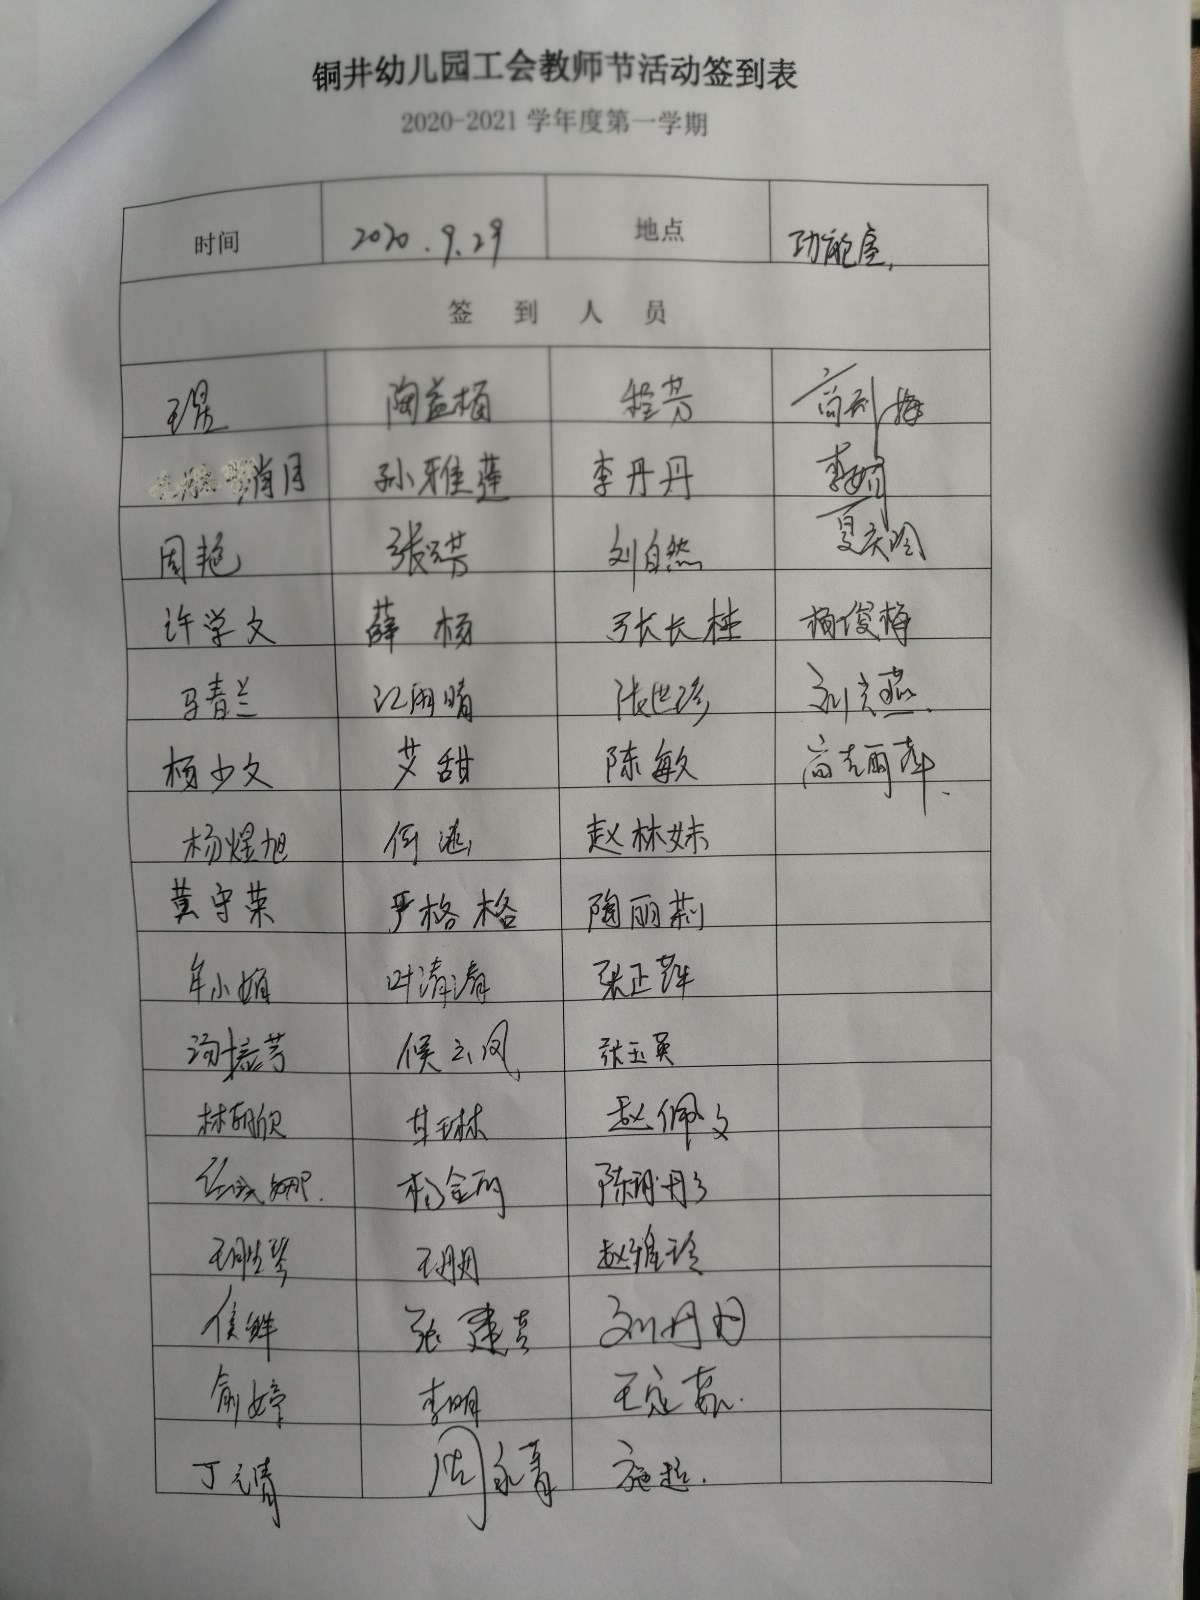 铜井幼儿园工会教师节活动签到表
2020-2021 学年度第一学期
时间 2020.9.29 地点 功能室
签 到 人 员
王昱 陶益楠 程芳
肖月 孙雅莲 李丹丹 李娟
周艳 张芸芳 刘自然
许学文 薛杨 张长桂 杨俊梅
马青兰 江雨晴 张世珍
杨少文 艾甜 陈敏 高克丽萍
杨煜旭 何滟 赵林妹
黄守荣 严格格 陶丽莉
牟小娟 叶清清 张正萍
汤括芳 侯云凤 张玉英
林翩欣 甘琳 赵佩文
杨金丽 陈珊丹
王胜琴 王珊 赵雅玲
侯鲜 张建芸 刘丹丹
俞婷 李明
丁元清 周永菁 施超